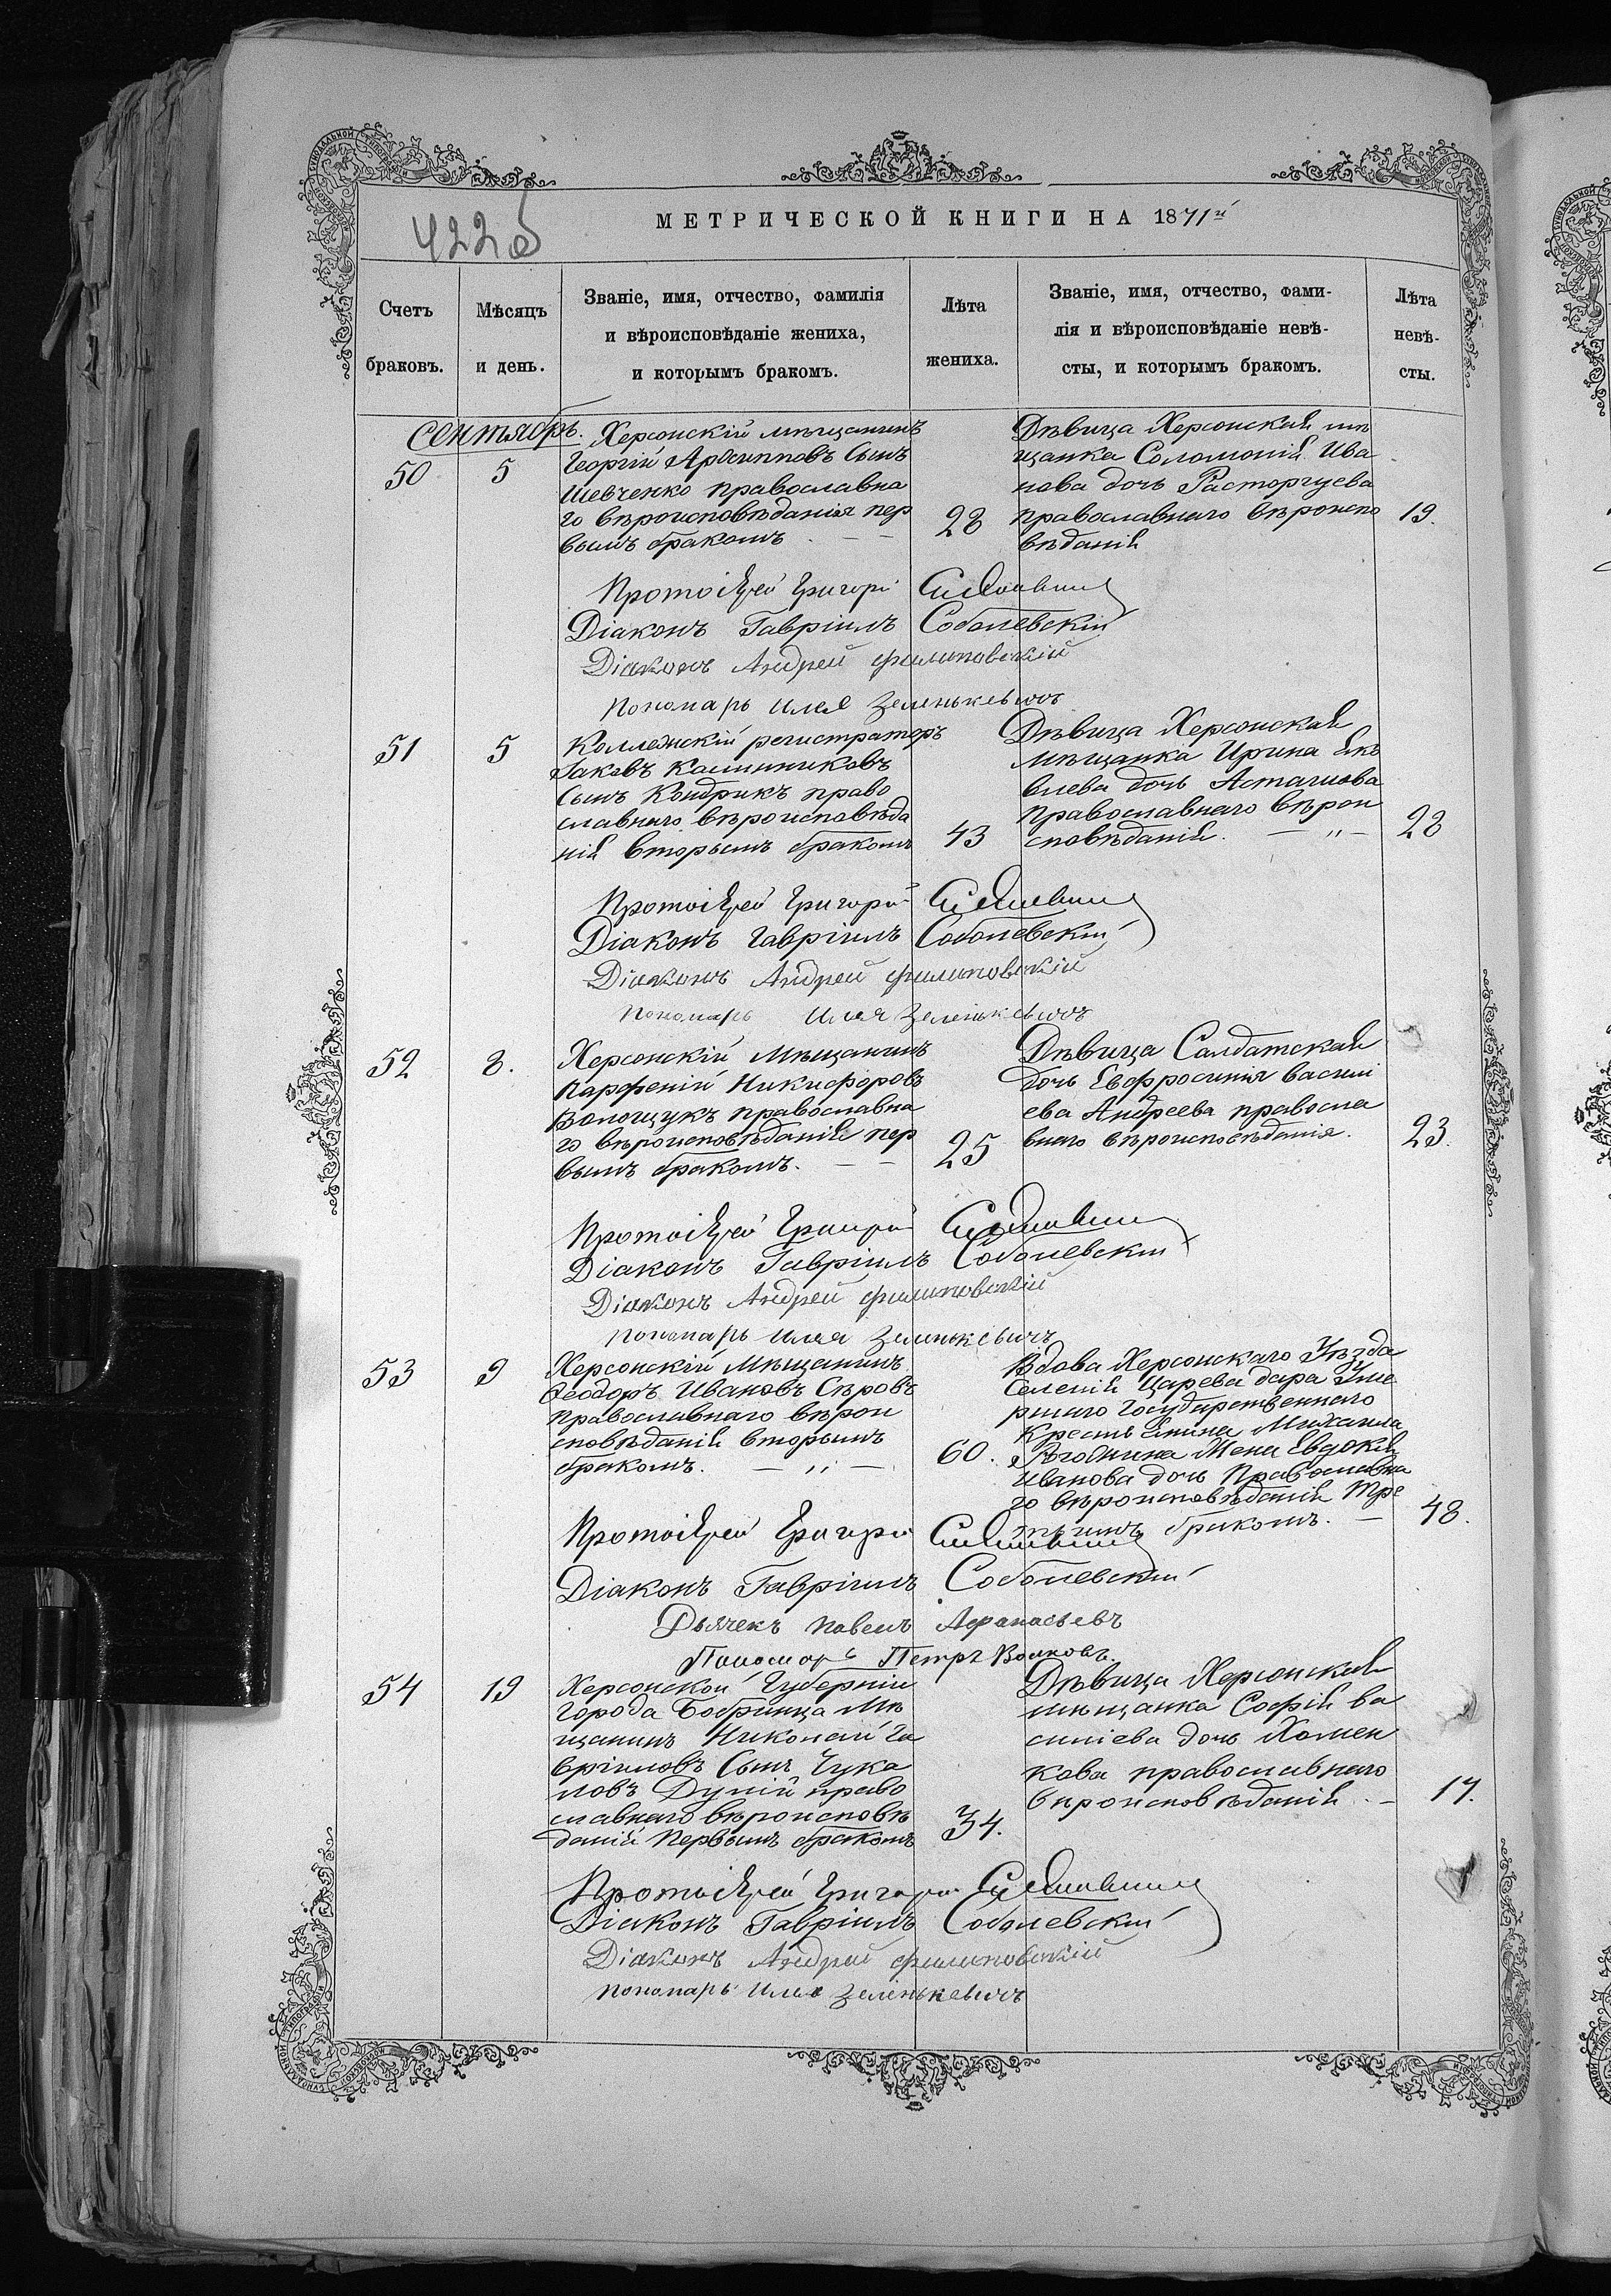 422 об
МЕТРИЧЕСКОЙ КНИГИ НА 1871й
Счетъ браковъ.
Мѣсяцъ и день.
Званіе, имя, отчество, фамилія
и вѣроисповѣданіе жениха,
и которымъ бракомъ.
Лѣта жениха.
Званіе, имя, отчество, фами-
лія и вѣроисповѣданіе невѣ-
сты, и которымъ бракомъ.
Лѣта невѣ-
сты.
Сентябрь.
50
5
Херсонскій мѣщанинъ
Георгій Архипповъ Сынъ
Шевченко православна
го вѣроисповѣданія пер
вымъ бракомъ
28
Дѣвица Херсонская мѣ
щанка Соломонія Ива
нова дочь Расторгуева
православнаго вѣроиспо
вѣданія
19.
Протоіерей Григорій
Діаконъ Гавріилъ Соболевскій
Діаконъ Андрей Филиповскій
Пономарь Илія Зеленькевичъ
51
5
Коллежскій регистраторъ
Іаковъ Калинниковъ
Сынъ Кондрикъ право
славнаго вѣроисповѣда
нія вторымъ бракомъ
43
Дѣвица Херсонская
мѣщанка Ирина Яко
влева дочь Асташова
Православнаго вѣрои
сповѣданія. — „ —
28
Протоіерей Григорій
Діаконъ Гавріилъ Соболевскій
Діаконъ Андрей Филиповскій
Пономарь Илія Зеленькевичъ
52
8.
Херсонскій Мѣщанинъ
Парфеній Никифоровъ
Волощукъ православна
го вѣроисповѣданія пер
вымъ бракомъ.
25
Дѣвица Салдатская
дочь Евфросинія Васили
ева Андреева правосла
внаго вѣроисповѣданія.
23.
Протоіерей Григорій
Діаконъ Гавріилъ Соболевскій
Діаконъ Андрей Филиповскій
Пономарь Илія Зеленькевичъ
53
9
Херсонскій Мѣщанинъ
Феодоръ Ивановъ Сѣровъ
Православнаго вѣрои
сповѣданія вторымъ
бракомъ. — „ —
60.
Вдова Херсонскаго Уѣзда
Селенія Царева дара Уме
ршаго Государственнаго
Крестьянина Михаила
Жена Евдокія
Иванова дочь Православна
го вѣроисповѣданія Тре
тьимъ бракомъ. —
48.
Протоіерей Григорій
Діаконъ Гавріилъ Соболевскій
Дьячекъ Павелъ Афанасьевъ
Пономарь Петръ Волковъ.
54
19
Херсонской Губерніи
Города Бобринца Мѣ
щанинъ Николай Га
вріиловъ Сынъ Чука
ловъ право
славнаго вѣроисповѣ
данія Первымъ бракомъ
34.
Дѣвица Херсонская
мѣщанка Софія Ва
силіева дочь Хомен
кова православнаго
вѣроисповѣданія. —
17.
Протоіерей Григорій
Діаконъ Гавріилъ Соболевскій
Діаконъ Андрей Филиповскій
Пономарь Илія Зеленькевичъ